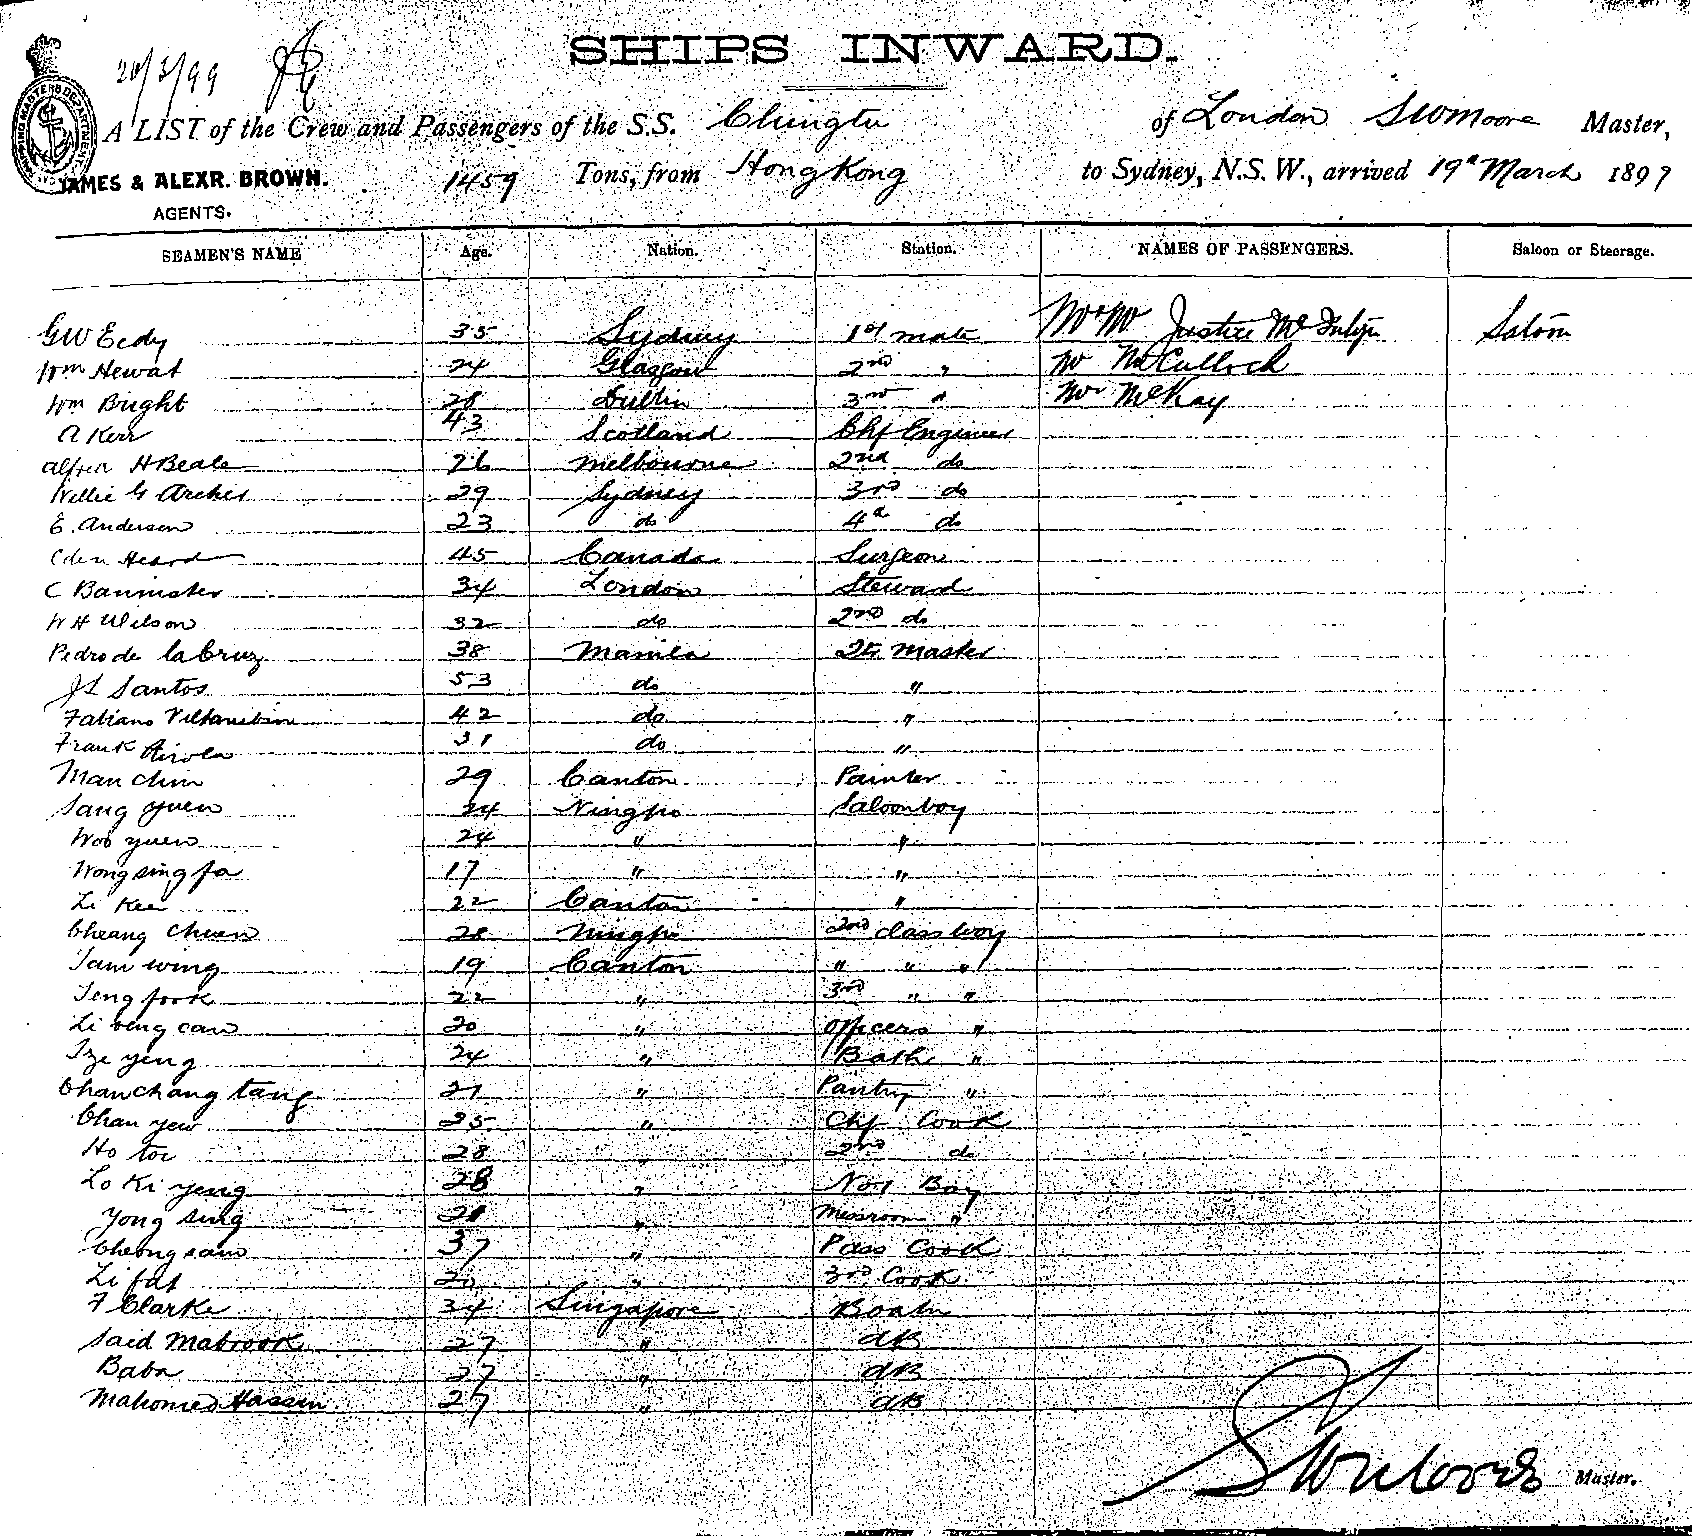 SHIPS INWARD.
20/3/99
A LIST of the Crew and Passengers of the S.S. Chingtu of London Master,
JAMES & ALEXR. BROWN. 1459 Tons, from Hong Kong to Sydney, N.S.W., arrived 19th March 1897
AGENTS.
SEAMEN'S NAME Age. Nation. Station. NAMES OF PASSENGERS. Saloon or Steerage.
GW Eedy 35 Sydney 1st mate Justice Saloon
Wm Hewat 24 Glasgow 2nd " McCulloch
Wm Bright 28 Dublin 3rd " McKay
A Kerr 43 Scotland Chf Engineer
Alfred H Beale 26 Melbourne 2nd do
Willie G Archer 29 Sydney 3rd do
E. Anderson 23 do 4th do
Heard 45 Canada Surgeon
C Bannister 34 London Steward
W H Wilson 32 do 2nd do
Pedro de la Cruz 38 Manila Qtr Master
JL Santos 53 do "
Fabiano 42 do "
Frank 31 do "
Man Chin 29 Canton Painter
Sang yuen 24 Ningpo Saloonboy
Woo yuen 24 " "
Wong sing fa 17 " "
Li Kee 22 Canton "
Cheang Chuen 28 Ningpo 2nd class boy
Tam wing 19 Canton " " "
Teng fook 22 " 3rd " "
Li 20 " officers "
Tze yeng 24 " Bath "
Chan chang tang 21 " Pantry "
Chan yew 25 " Chf Cook
Ho toi 28 " 2nd do
Lo Ki yeng 28 " No 1 Boy
Yong sing 21 " Messroom "
Cheong sam 37 " Pass Cook
Li fat 20 " 3rd Cook
F Clarke 34 Singapore Boatn
Said Mabrook 27 " AB
Baba 27 " AB
Mahomed Hassin 27 " AB
Master.